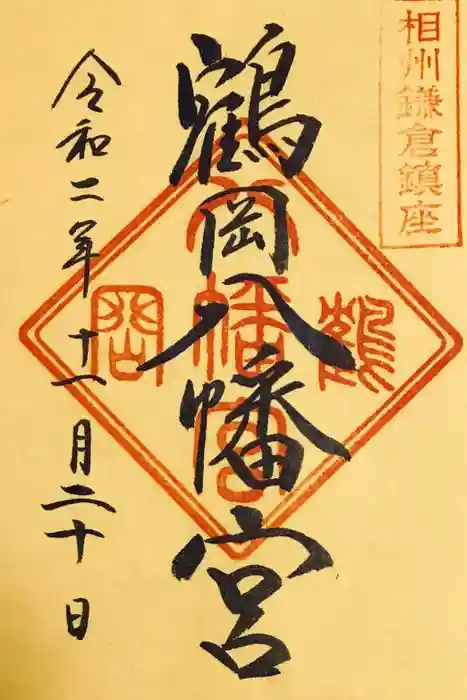 相州鎌倉鎮座
鶴岡八幡宮
鶴
八幡宮
岡
令和二年十一月二十日